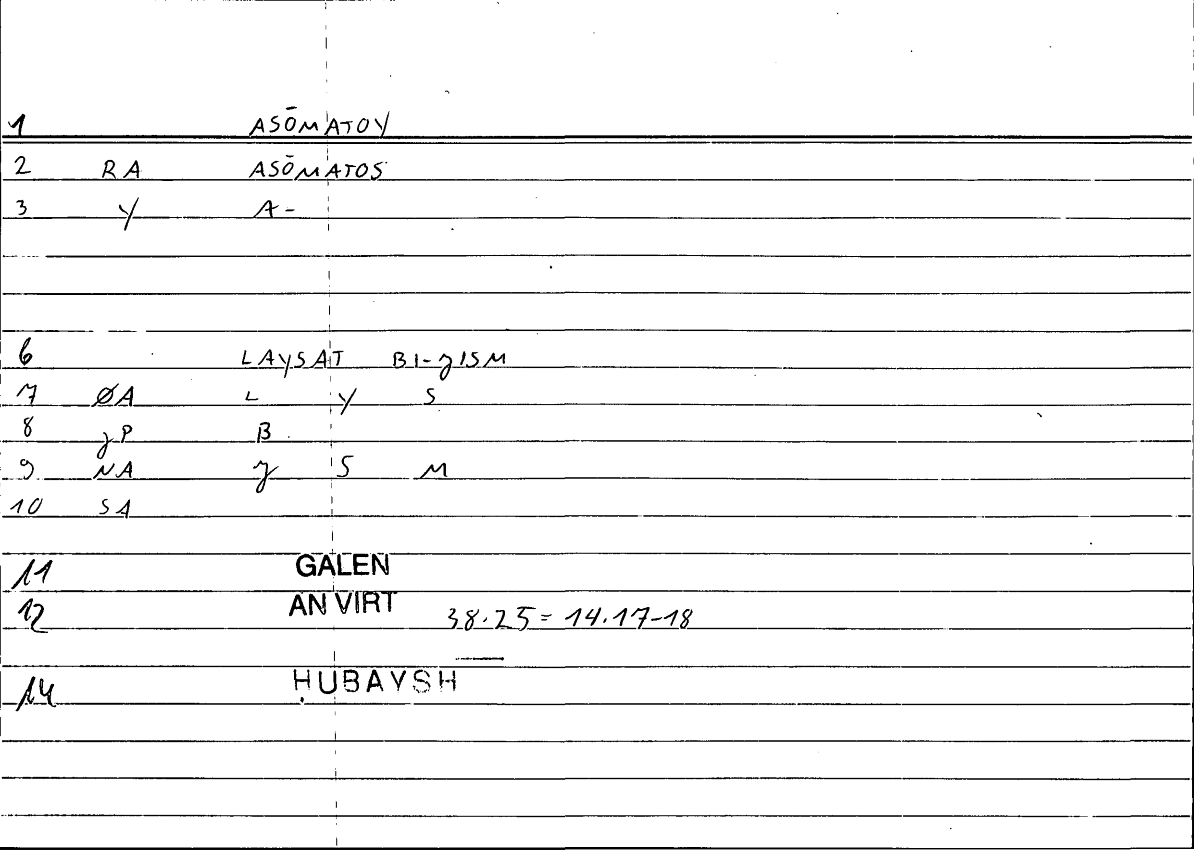 1 ASŌMATOY
2 RA ASŌMATOS
3 Y A-
6 LAYSAT BI-ʒISM
7 ØA L Y S
8 ʒP B
9 NA ʒ S M
10 SA
11 GALEN
12 AN VIRT 38.25 = 14.17-18
14 ḤUBAYSH